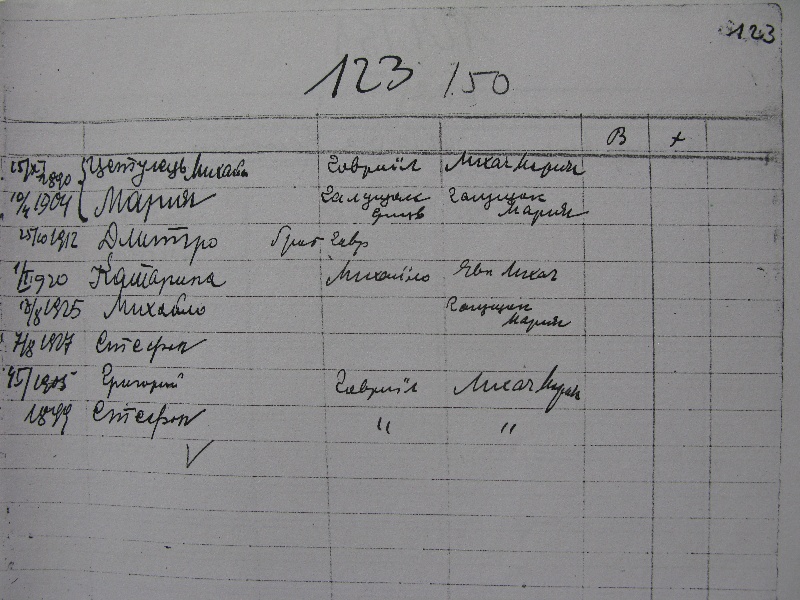 123
123 /50
В +
15/XI 1890 Цетулець Михайло Гавриїл Михач Мария
10/X 1904 Мария Галущак Галущак
Мария
25/10 1912 Дмитро брат Гавр
1/II 1920 Катарина Михайло Михач
2/8 1925 Михайло Галущак
Мария
7/8 1927 Стефан
1905 Григорий Гавриїл Михач Мария
1899 Стефан " "